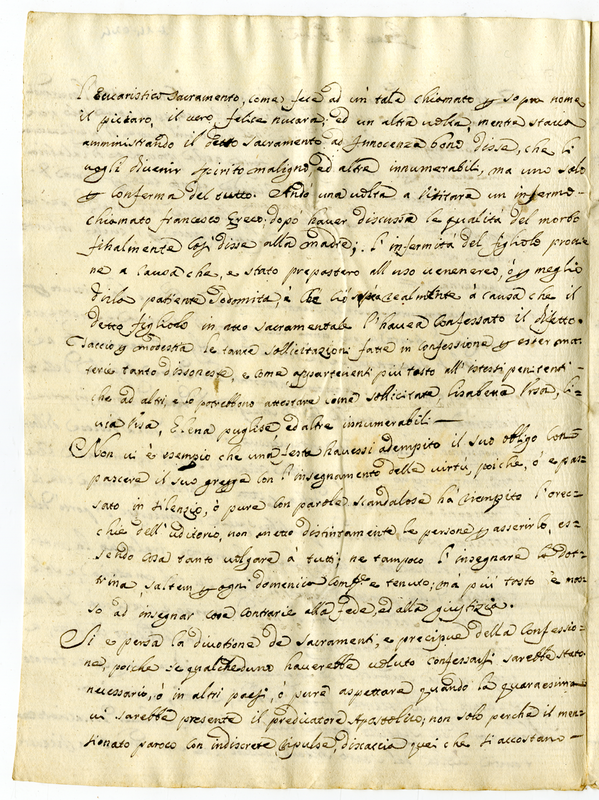 l'Eucaristico Sacramento, come fece ad un tale chiamato p sopra nome
il piccaro, il vero felice nucara; ed un altra volta, mentre stava
amministrando il detto Sacramento ad Innocenza bono disse, che li
vogli divenir spirito maligno, ed altre innumerabili, ma uno solo
p conferma del tutto. Andò una volta a visitare un infermo
chiamato francesco Greco. dopo haver discussa le qualità del morbo
finalmente così disse alla madre; l'infermità del figliolo prove
ne a causa che, e stato prepostero all'uso venenereo, ò p meglio
dirlo patiente sodomita, e ciò à causa che il
detto figliolo in atto sacramentale l'havea confessato il diletto.
Taccio p modestia le tante sollicitazioni fatte in confessione p esser ma
terie tanto dissoneste, e come appartenenti più tosto all'istessi penitenti
che ad altri, e lo potrebbono attestare come sollicitate, Lisabetta Orsa, li=
via Pisa, Elena puglise, ed altre innumerabili —
Non vi è esempio che una festa havessi adempito il suo obligo con
pascere il suo gregge con l'insegnamento delle virtù, poiche, ò e pas=
sato in silenzio, ò pure con parole scandalose ha riempito l'orec=
chie dell'uditorio, non metto distintamente le persone p asserirlo, es=
sendo cosa tanto volgare à tutti; ne tampoco l'insegnare la dot=
trina, saltem p ogni domenica come e tenuto; ma più tosto è mos=
so ad insegnar cose contrarie alla fede, ed alla giustizia.
Si e persa la divotione de Sacramenti, e precipue della Confessio=
ne, poiche se qualcheduno haverebbe voluto confessarsi sarebbe stato
necessario, ò in altri paesi, ò pure aspettare quando la quaraesima
vi sarebbe presente il predicatore Apostolico; non solo perche il men=
tionato paroco con indiscrete ripulse, discaccia quei che si accostano —